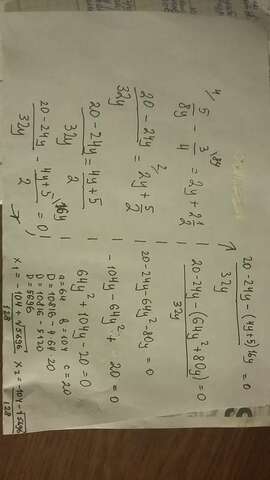 4/ 5/8y - 3/4 \8y = 2y + 2 1/2
20 - 24y / 32y = 2/ 2y + 5/2
20 - 24y / 32y = 4y + 5 / 2
20 - 24y / 32y - 4y + 5 / 2 \16y = 0
20 - 24y - (4y+5)16y / 32y = 0
20 - 24y - (64y² + 80y) / 32y = 0
20 - 24y - 64y² - 80y = 0
-104y - 64y² + 20 = 0
64y² + 104y - 20 = 0
a = 64 b = 104 c = 20
D = 10816 - 4·64·20
D = 10816 - 5120
D = 5696
x₁ = -104 + √5696 / 128 x₂ = -104 - √5696 / 128